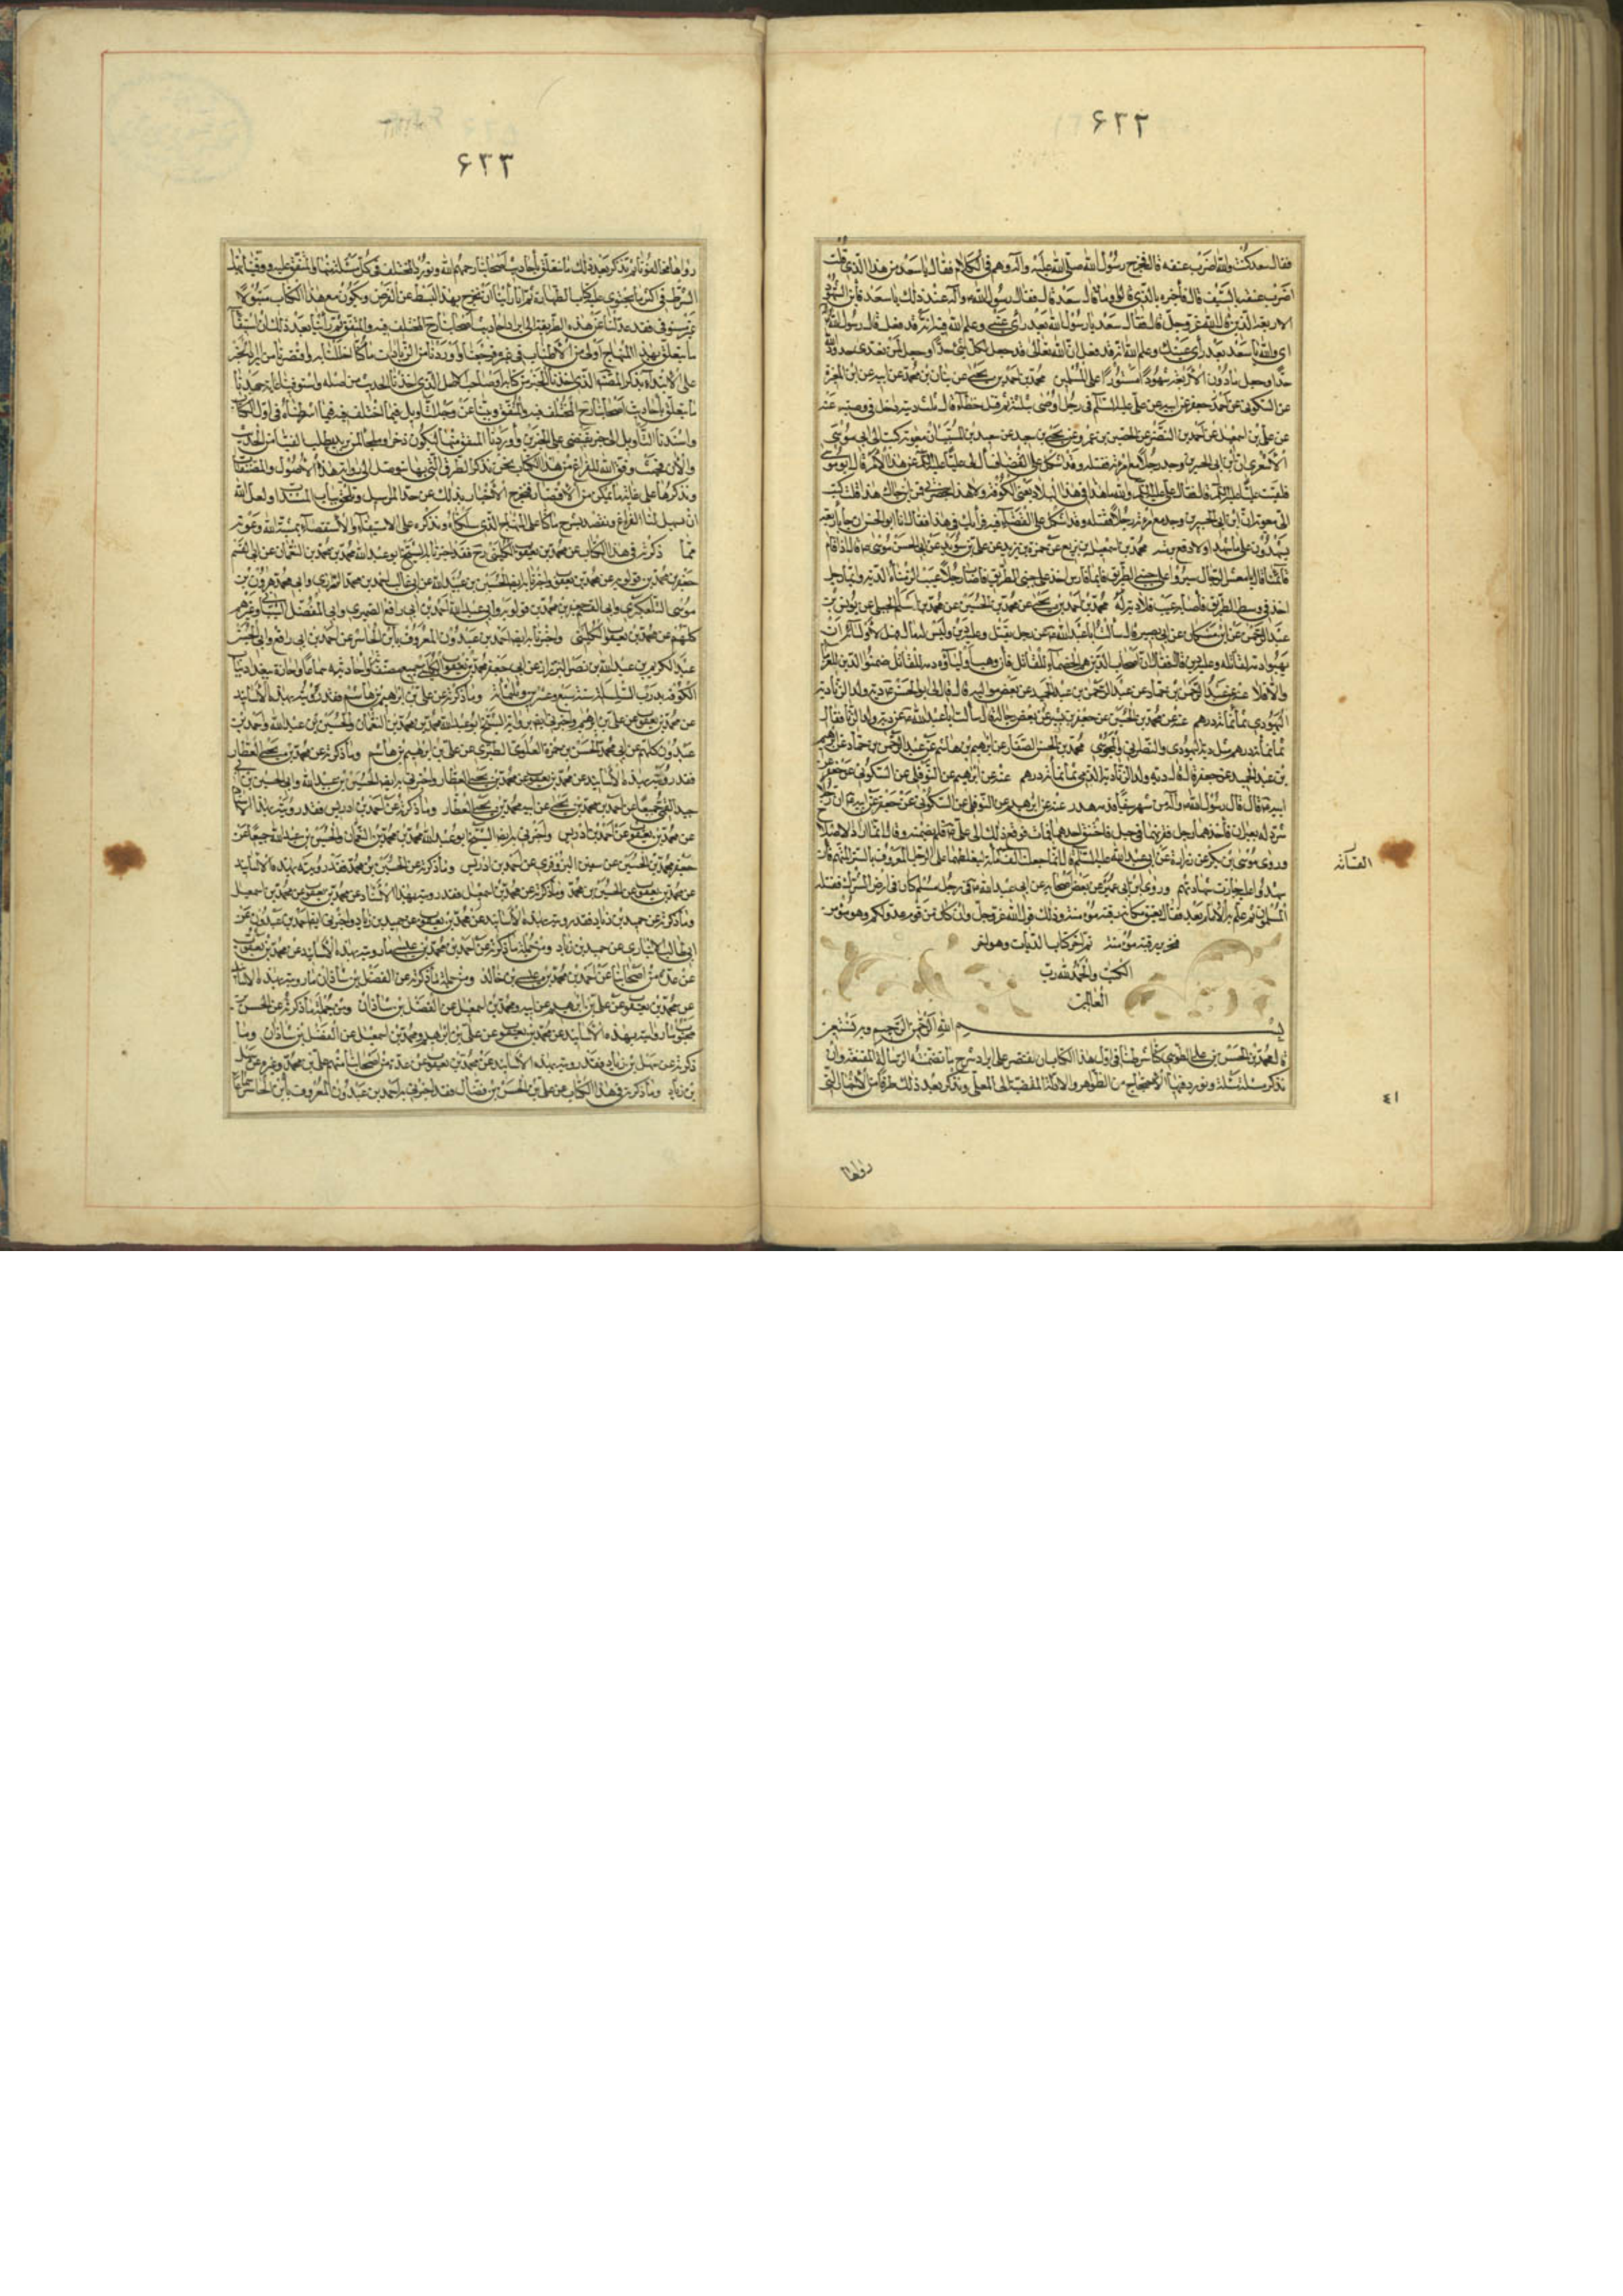 ۶۲۲
فقال سعد كنت والله اضرب عنقه قال فخرج رسول الله صلى الله عليه وآله وهم في الكلام فقال يا سعد من هذا الذي قلت
اضرب عنقه بالسيف قال فأخبره بالذي قالوا وما قال سعد قال فقال رسول الله وآله عند ذلك يا سعد فأين الشهود
الاربعة الذين قال الله عز وجل فقال سعد يا رسول الله بعد رأي عيني وعلم الله فيه انه قد فعل قال رسول الله
اي والله يا سعد بعد رأي عينك وعلم الله انه قد فعل ان الله تعالى قد جعل لكل شئ حدا وجعل لمن تعدى حدود الله
حدا وجعل ما دون الاربعة شهود مستورا على المسلمين محمد بن احمد بن يحيى عن بنان بن محمد عن ابيه عن ابن المغيرة
عن السكوني عن جعفر عن ابيه عن علي عليه السلام في رجل اوصى بثلثه ثم قتل خطاء قال ثلث ديته داخل في وصيته عنه
عن علي بن اسمعيل عن احمد بن النضر عن الحصين بن عمرو عن يحيى بن سعيد عن سعيد بن المسيب ان معوية كتب الى ابي موسى
الاشعري ان ابن ابي الجسرين وجد رجلا مع امرئته فقتله وقد اشكل على القضاة فسأل لي عليا عن هذا الامر قال ابو موسى
فلقيت عليا قال فقال علي والله ما هذا في هذه البلاد يعني الكوفة ولا هذا بحضرتي فمن اين جاءك هذا قلت كتب
الي معوية ان ابن ابي الجسرين وجد مع امرئته رجلا فقتله وقد اشكل على القضاة فيه فرأيك في هذا فقال انا ابو الحسن ان جاء باربعة
يشهدون على ما شهد والا دفع برمته محمد بن اسمعيل بن بزيع عن حمزة بن زيد عن علي بن سويد عن ابي الحسن موسى قال اذا قام
قائمنا قال يا معشر الرجال سيروا على جنبي الطريق فايما فارس اخذ على جنبي الطريق فاصاب رجلا عيب الزمناه الدية وايما رجل
اخذ في وسط الطريق فاصابه عيب فلا دية له محمد بن احمد بن يحيى عن محمد بن الحسين عن محمد بن اسلم الجبلي عن يونس بن
عبد الرحمن عن ابن مسكان عن ابي بصير قال سألت ابا عبد الله عن رجل يقتل وعليه دين وليس له مال فهل لاوليائه ان
يهبوا دمه لقاتله وعليه دين قال فقال ان اصحاب الدين هم الخصماء للقاتل فان وهب اولياؤه دمه للقاتل ضمنوا الدين للغرماء
والا فلا عنه عن عبد الرحمن بن حماد عن عبد الرحمن بن عبد الحميد عن بعض مواليه قال قال لي ابو الحسن دية ولد الزنا دية
اليهودي ثمانمائة درهم عنه عن محمد بن الحسين عن جعفر بن بشير عن بعض رجاله قال سألت ابا عبد الله عن دية ولد الزنا فقال
ثمانمائة درهم مثل دية اليهودي والنصراني والمجوسي محمد بن الحسن الصفار عن ابرهيم بن هاشم عن عبد الرحمن بن حماد عن ابرهيم
بن عبد الحميد عن جعفر قال قال دية ولد الزنا دية الذمي ثمانمائة درهم عنه عن ابرهيم عن النوفلي عن السكوني عن جعفر عن
ابيه قال قال رسول الله وآله من شهر سيفا فدمه هدر عنه عن ابرهيم عن النوفلي عن السكوني عن جعفر عن ابيه ان رجلا
شرد له بعيران فأخذهما رجل فقرنهما في حبل فاختنق احدهما فمات فرفع ذلك الى علي فلم يضمنه وقال انما اراد الاصلاح
وروى موسى بن بكر عن زرارة عن ابي عبد الله عليه السلم قال انما جعلت القسامة ليغلظ بها على الرجل المعروف بالستر المتهم فان
شهدوا عليه جازت شهادتهم وروى ابن ابي عمير عن بعض اصحابه عن ابي عبد الله في رجل مسلم كان في ارض الشرك فقتله
المسلمون ثم علم به الامام بعد فقال يعتق مكانه رقبة مؤمنة وذلك قول الله عز وجل وان كان من قوم عدو لكم وهو مؤمن
فتحرير رقبة مؤمنة تم آخر كتاب الديات وهو اخر
الكتب والحمد لله رب
العالمين
بسم الله الرحمن الرحيم وبه نستعين
قال محمد بن الحسن بن علي الطوسي كنا شرطنا في اول هذا الكتاب ان نقتصر على ايراد شرح ما تضمنته الرسالة المقنعة وان
نذكر مسئلة مسئلة ونورد فيها الاحتجاج من الظواهر والادلة المفضية الى العلم ونذكر بعد ذلك طرفا من الاخبار التي
رواها
٤١
۶۲۳
رواها مخالفونا ثم نذكر بعد ذلك ما يتعلق باحاديث اصحابنا رحمهم الله ونورد المختلف في كل مسئلة منها والمتفق عليه ووفينا بهذا
الشرط في اكثر ما يحتوي عليه كتاب الطهارة ثم انا رأينا ان نخرج بهذا البسط عن الغرض ويكون مع هذا الكتاب مبتورا
غير مستوفي فعدلنا عن هذه الطريقة الى ايراد احاديث اصحابنا رح المختلف فيه والمتفق ثم رأينا بعد ذلك ان استيفاء
ما يتعلق بهذا المنهاج اولى من الاطناب في غيره فرجعنا واوردنا من الزيادات ما كنا اخللنا به واقتصرنا من ايراد الخبر
على الابتداء بذكر المصنف الذي اخذنا الخبر من كتابه او صاحب الاصل الذي اخذنا الحديث من اصله واستوفينا غاية جهدنا
ما يتعلق باحاديث اصحابنا رح المختلف فيه والمتفق وبينا عن وجه التأويل فيما اختلف فيه فيما اشرطناه في اول الكتاب
واسندنا التأويل الى خبر يقضي على الخبرين واوردنا المتفق منهما ليكون ذخرا وملجأ لمن يريد طلب الفتيا من الحديث
والان فحيث وفق الله للفراغ من هذا الكتاب نحن نذكر الطرق التي بها نتوصل الى رواية هذه الاصول والمصنفات
ونذكرها على غاية ما يمكن من الاختصار لتخرج الاخبار بذلك عن حد المراسيل وتلحق بباب المسندات ولعل الله
ان يسهل لنا الفراغ ونقصد بشرح ما كنا على المنهاج الذي سلكناه ونذكره على الاستيفاء والاستقصاء بمشية الله وعونه
فما ذكرته في هذا الكتاب عن محمد بن يعقوب الكليني رح فقد اخبرنا به الشيخ ابو عبد الله محمد بن محمد بن النعمان عن ابي القسم
جعفر بن محمد بن قولويه عن محمد بن يعقوب واخبرنا به ايضا الحسين بن عبيد الله عن ابي غالب احمد بن محمد الزراري وابي محمد هرون بن
موسى التلعكبري وابي القسم جعفر بن محمد بن قولويه وابي عبد الله احمد بن ابي رافع الصيمري وابي المفضل الشيباني وغيرهم
كلهم عن محمد بن يعقوب الكليني واخبرنا به ايضا احمد بن عبدون المعروف بابن الحاشر عن احمد بن ابي رافع وابي الحسين
عبد الكريم بن عبد الله بن نصر البزاز عن ابي جعفر محمد بن يعقوب الكليني جميع مصنفاته واحاديثه سماعا واجازة ببغداد بباب
الكوفة بدرب السلسلة سنة سبع وعشرين وثلثمائة وما ذكرته عن علي بن ابرهيم بن هاشم فقد رويته بهذه الاسانيد
عن محمد بن يعقوب عن علي بن ابرهيم واخبرني ايضا برواياته الشيخ ابو عبد الله محمد بن محمد بن النعمان والحسين بن عبيد الله واحمد بن
عبدون كلهم عن ابي محمد الحسن بن حمزة العلوي الطبري عن علي بن ابرهيم بن هاشم وما ذكرته عن محمد بن يحيى العطار
فقد رويته بهذه الاسانيد عن محمد بن يعقوب عن محمد بن يحيى العطار واخبرني به ايضا الحسين بن عبيد الله وابي الحسين بن ابي
جيد القمي جميعا عن احمد بن محمد بن يحيى عن ابيه محمد بن يحيى العطار وما ذكرته عن احمد بن ادريس فقد رويته بهذا الاسناد
عن محمد بن يعقوب عن احمد بن ادريس واخبرني به ايضا الشيخ ابو عبد الله محمد بن محمد بن النعمان والحسين بن عبيد الله جميعا عن
جعفر محمد بن الحسين بن سفين البزوفري عن احمد بن ادريس وما ذكرته عن الحسين بن محمد فقد رويته بهذه الاسانيد
عن محمد بن يعقوب عن الحسين بن محمد وما ذكرته عن محمد بن اسمعيل فقد رويته بهذا الاسناد عن محمد بن يعقوب عن محمد بن اسمعيل
وما ذكرته عن حميد بن زياد فقد رويته بهذه الاسانيد عن محمد بن يعقوب عن حميد بن زياد واخبرني ايضا احمد بن عبدون عن
ابي طالب الانباري عن حميد بن زياد ومن جملة ما ذكرته عن احمد بن محمد بن عيسى ما رويته بهذه الاسانيد عن محمد بن يعقوب
عن عدة من اصحابنا عن احمد بن محمد بن عيسى بن خالد ومن جملة ما ذكرته عن الفضل بن شاذان ما رويته بهذه الاسانيد
عن محمد بن يعقوب عن علي بن ابرهيم عن ابيه ومحمد بن اسمعيل عن الفضل بن شاذان ومن جملة ما ذكرته عن الحسن بن
محبوب ما رويته بهذه الاسانيد عن محمد بن يعقوب عن علي بن ابرهيم ومحمد بن اسمعيل عن الفضل بن شاذان وما
ذكرته عن سهل بن زياد فقد رويته بهذه الاسانيد عن محمد بن يعقوب عن عدة من اصحابنا منهم علي بن محمد وغيره عن سهل
بن زياد وما ذكرته في هذا الكتاب عن علي بن الحسن بن فضال فقد اخبرني به احمد بن عبدون المعروف بابن الحاشر